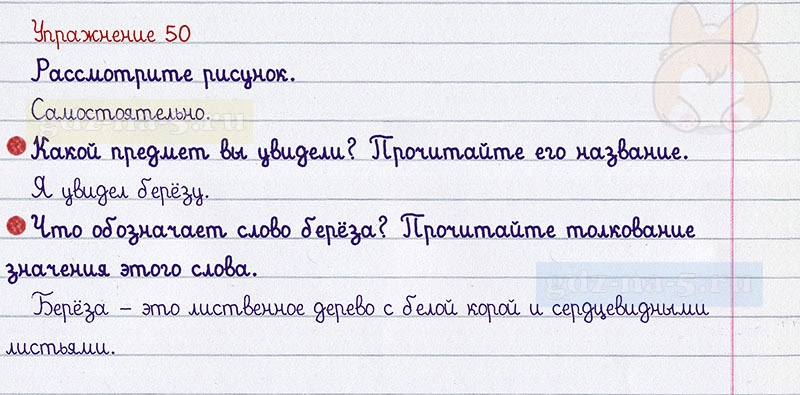 Упражнение 50
Рассмотрите рисунок.
Самостоятельно.
gdz-na-5.ru
Какой предмет вы увидели? Прочитайте его название.
Я увидел берёзу.
Что обозначает слово берёза? Прочитайте толкование
значения этого слова.
gdz-na-5.ru
Берёза – это лиственное дерево с белой корой и сердцевидными
листьями.